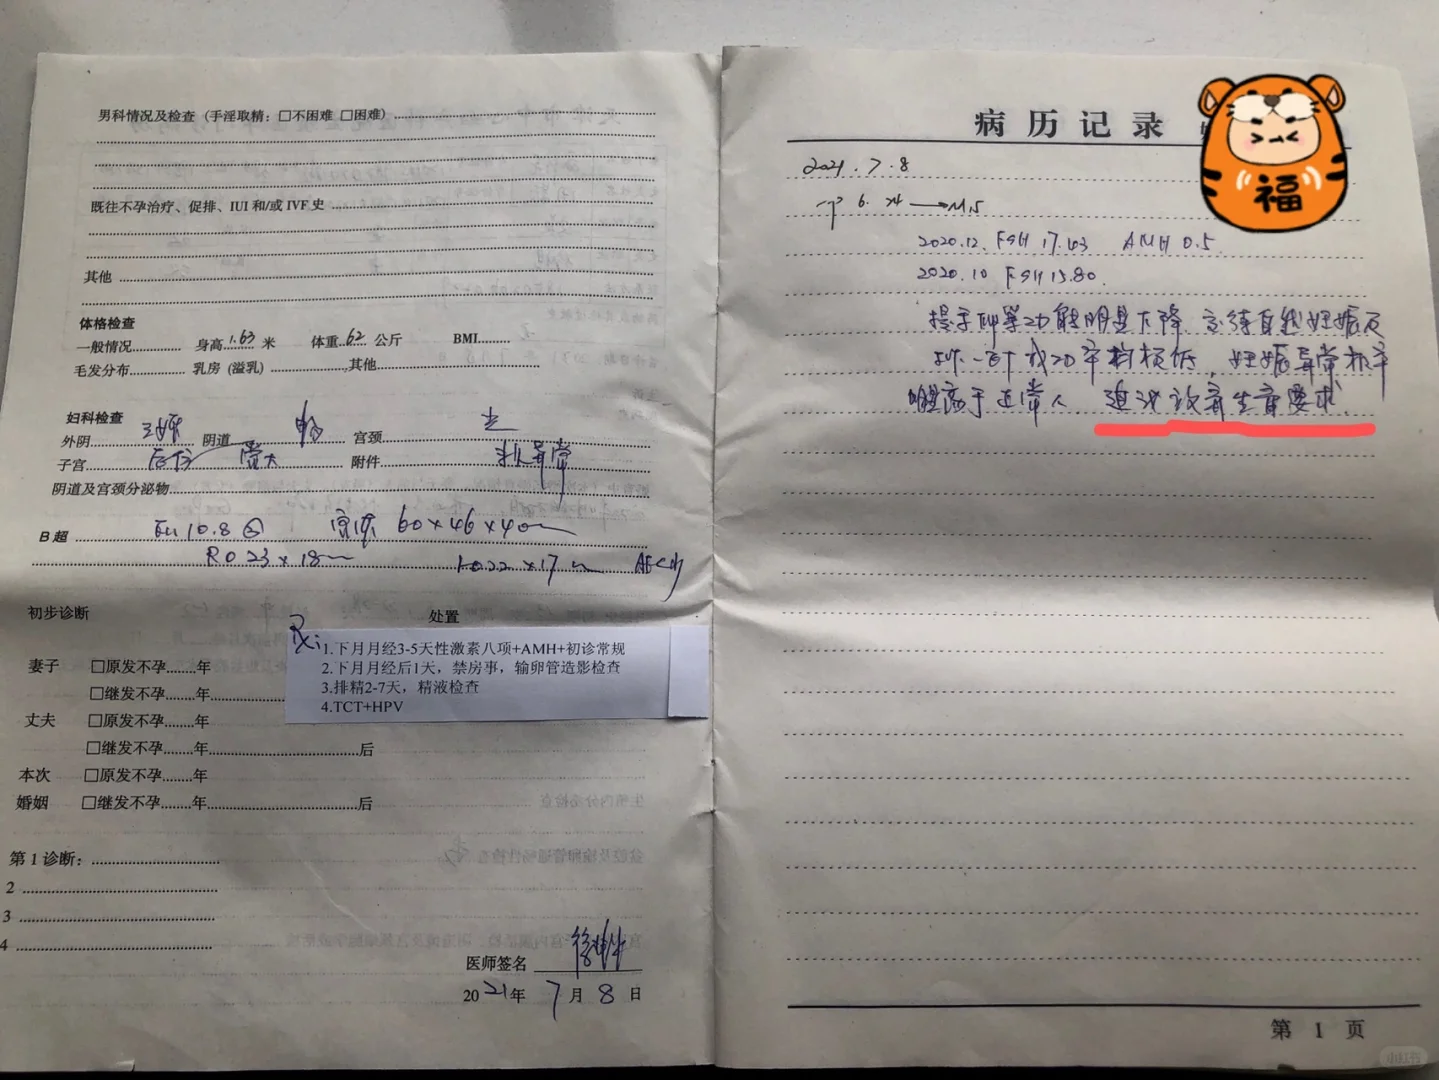 男科情况及检查（手淫取精：□不困难 □困难）
既往不孕治疗、促排、IUI 和/或 IVF 史
其他
体格检查
一般情况 身高 1.63 米 体重 62 公斤 BMI
毛发分布 乳房（溢乳） 其他
妇科检查
外阴 阴道 畅 宫颈 光
子宫 后位 常大 附件 未及异常
阴道及宫颈分泌物
B 超 En 10.8 宫体 60×46×40
RO 23×18 LO 22×17
初步诊断 处置
Rx:
1.下月月经3-5天性激素八项+AMH+初诊常规
2.下月月经后1天，禁房事，输卵管造影检查
3.排精2-7天，精液检查
4.TCT+HPV
妻子 □原发不孕........年
□继发不孕........年
丈夫 □原发不孕........年
□继发不孕........年 后
本次 □原发不孕........年
婚姻 □继发不孕........年 后
第 1 诊断：
2
3
4
医师签名
2021年 7 月 8 日
病历记录
福
2021.7.8
6.24
2020.12. FSH 17.43 AMH 0.5.
2020.10 FSH 15.80.
提示卵巢功能明显下降 自然妊娠及
成功率极低，妊娠异常机率
明显高于正常人 生育要求.
第 1 页
小红书